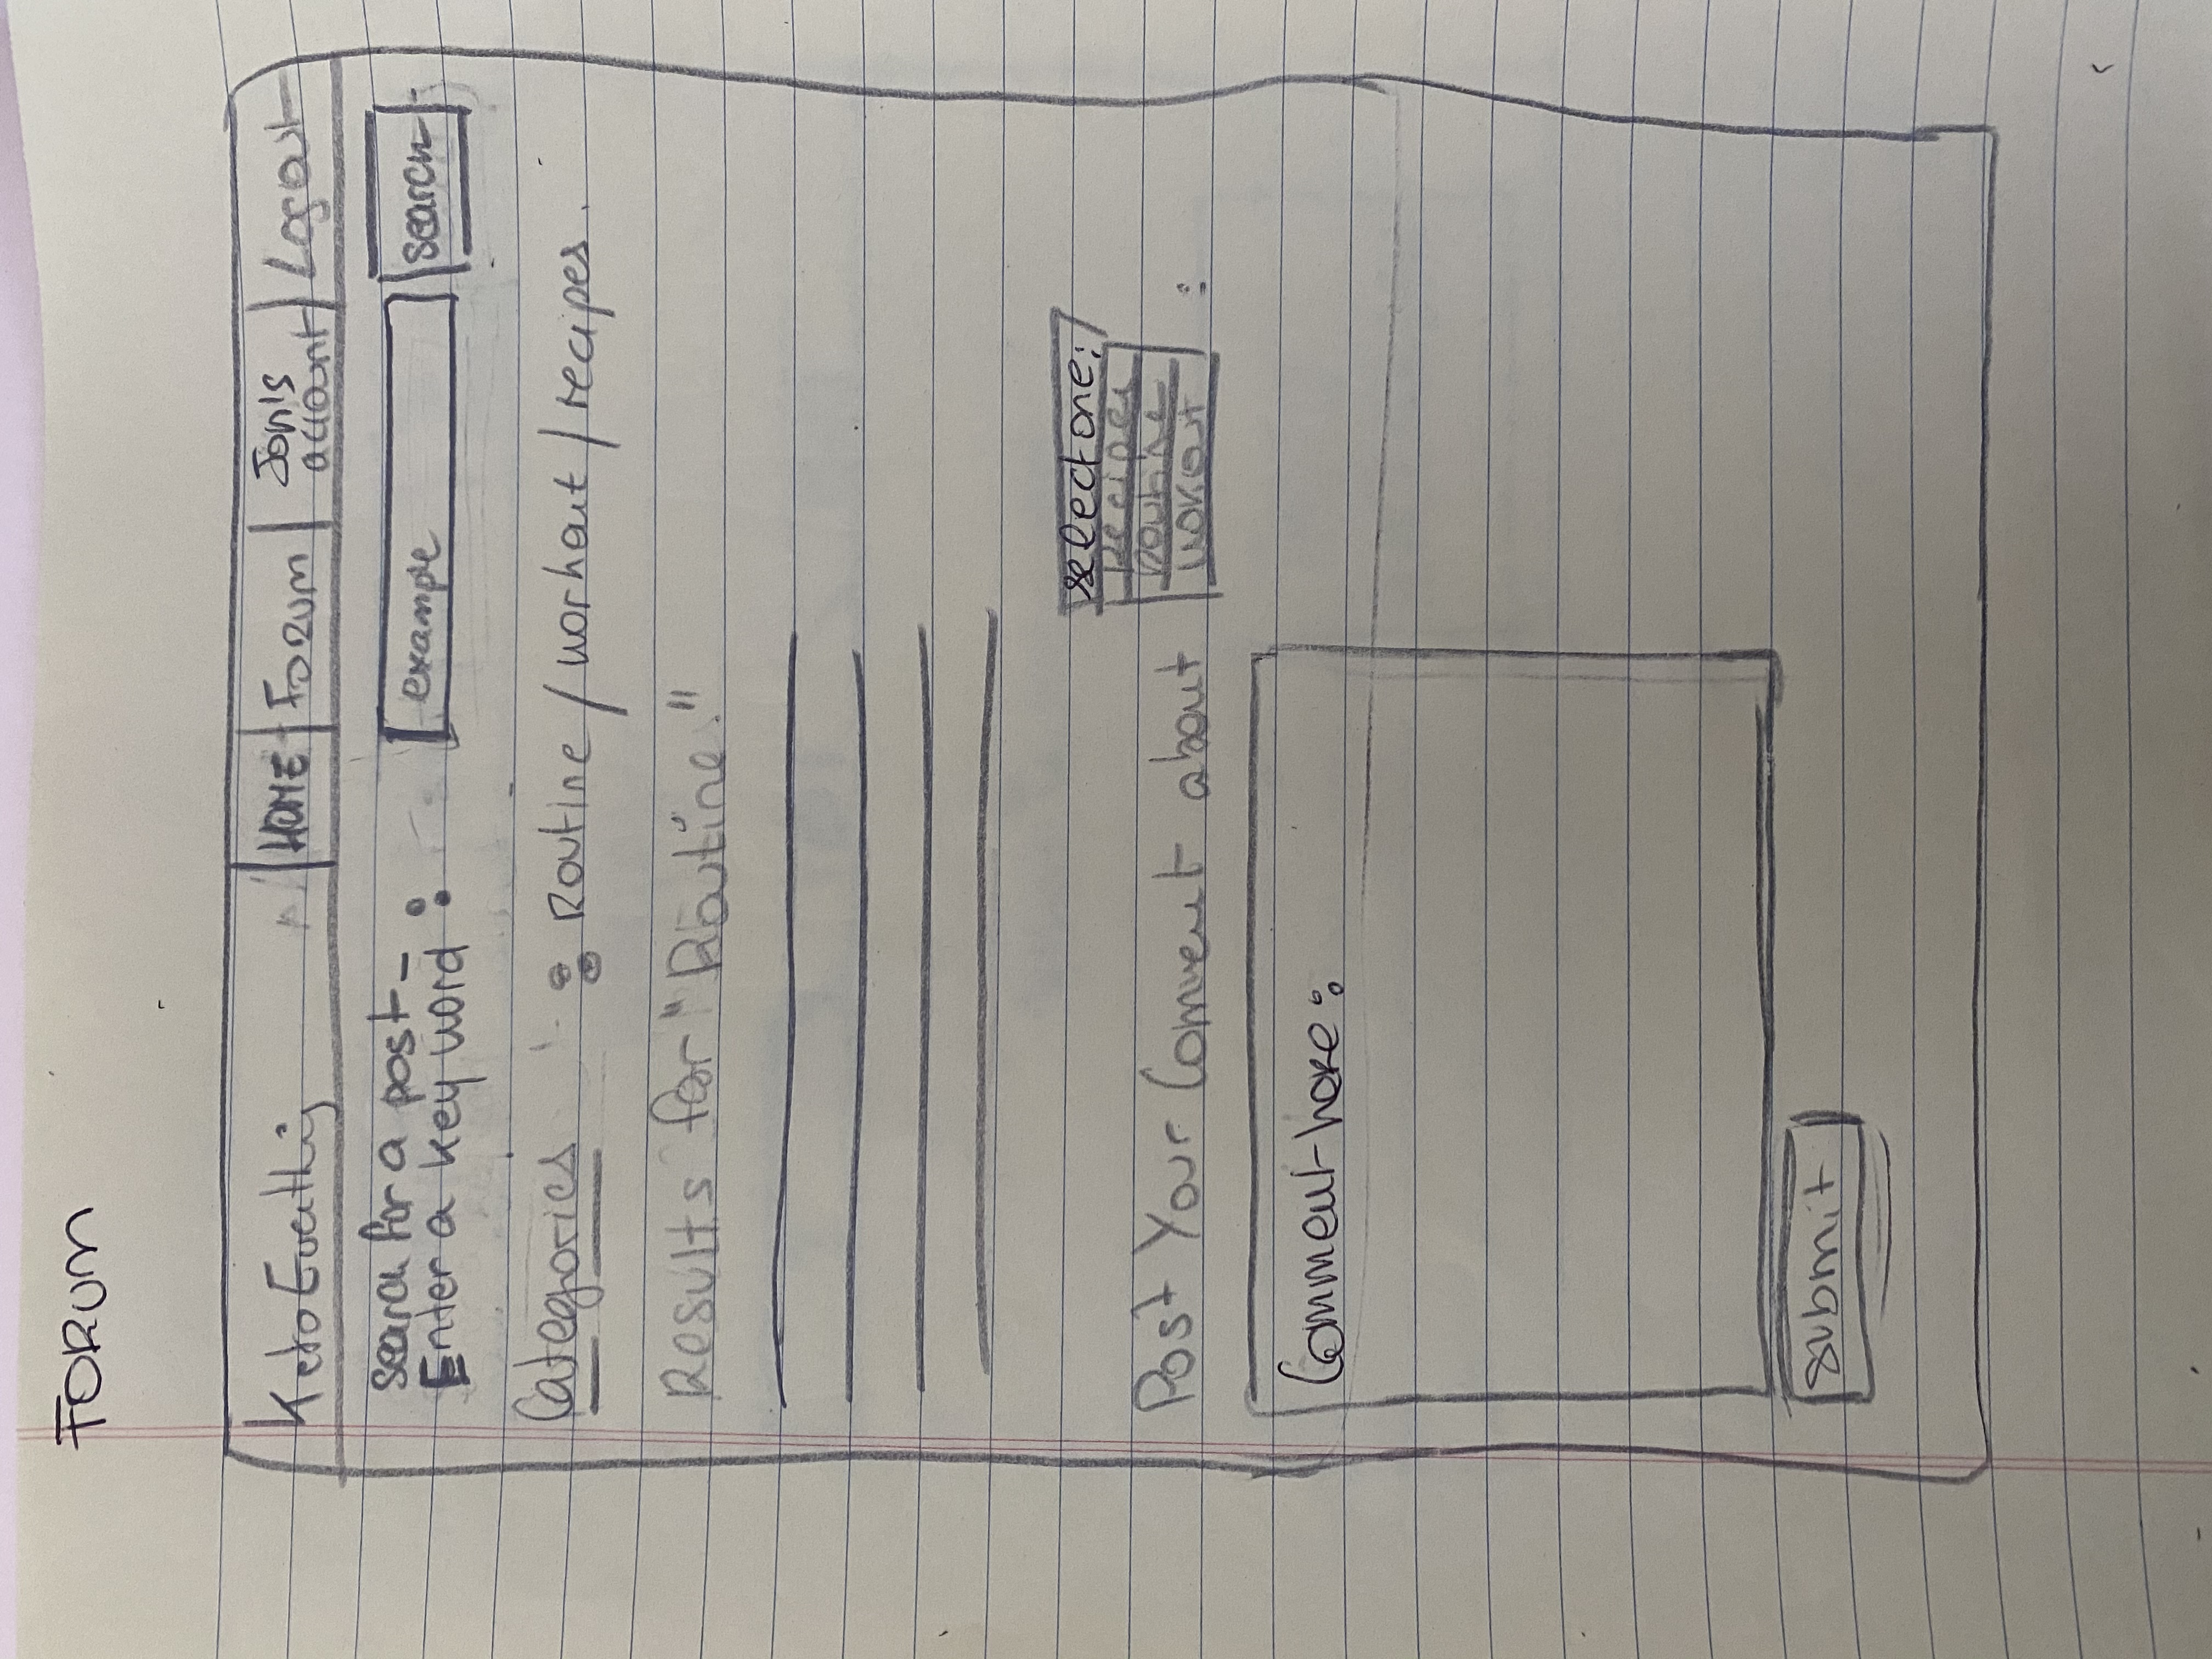 FORUM
Keto Evathig
HOME
Forum
Jon's
account
Logout
search for a post -
Enter a key word :
example
search
Categories : Routine / workout / recipes.
Results for "Routine."
select one:
Recipes
Routine
workout
Post Your Comment about :
Comment here:
submit